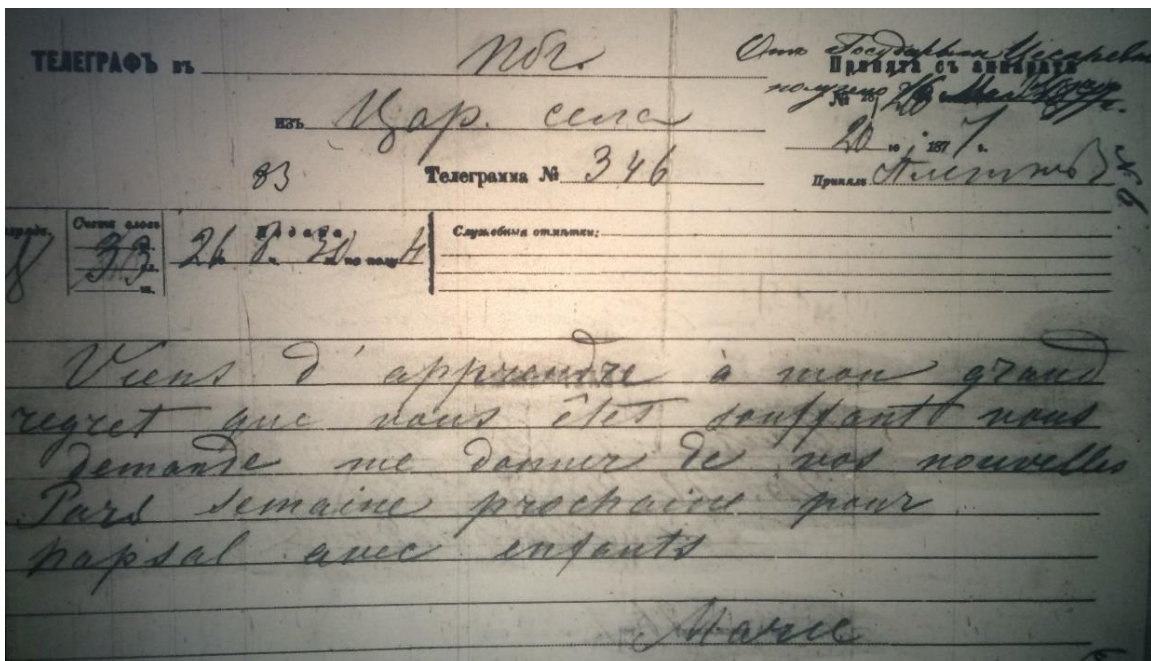 ТЕЛЕГРАФЪ въ Пбг.
Отъ Государыни Цесаревны
Принята съ аппарата
получено
№
изъ Цар. села
20 го 1877 г.
83 Телеграмма № 346
Принялъ
№ 6.
Счетъ словъ
33
Подана
26 ч. 30 м. по полу
Служебныя отмѣтки:
Viens d'apprendre à mon grand
regret que vous êtes souffant vous
demande me donner de vos nouvelles
Pars semaine prochaine pour
hapsal avec enfants
Marie